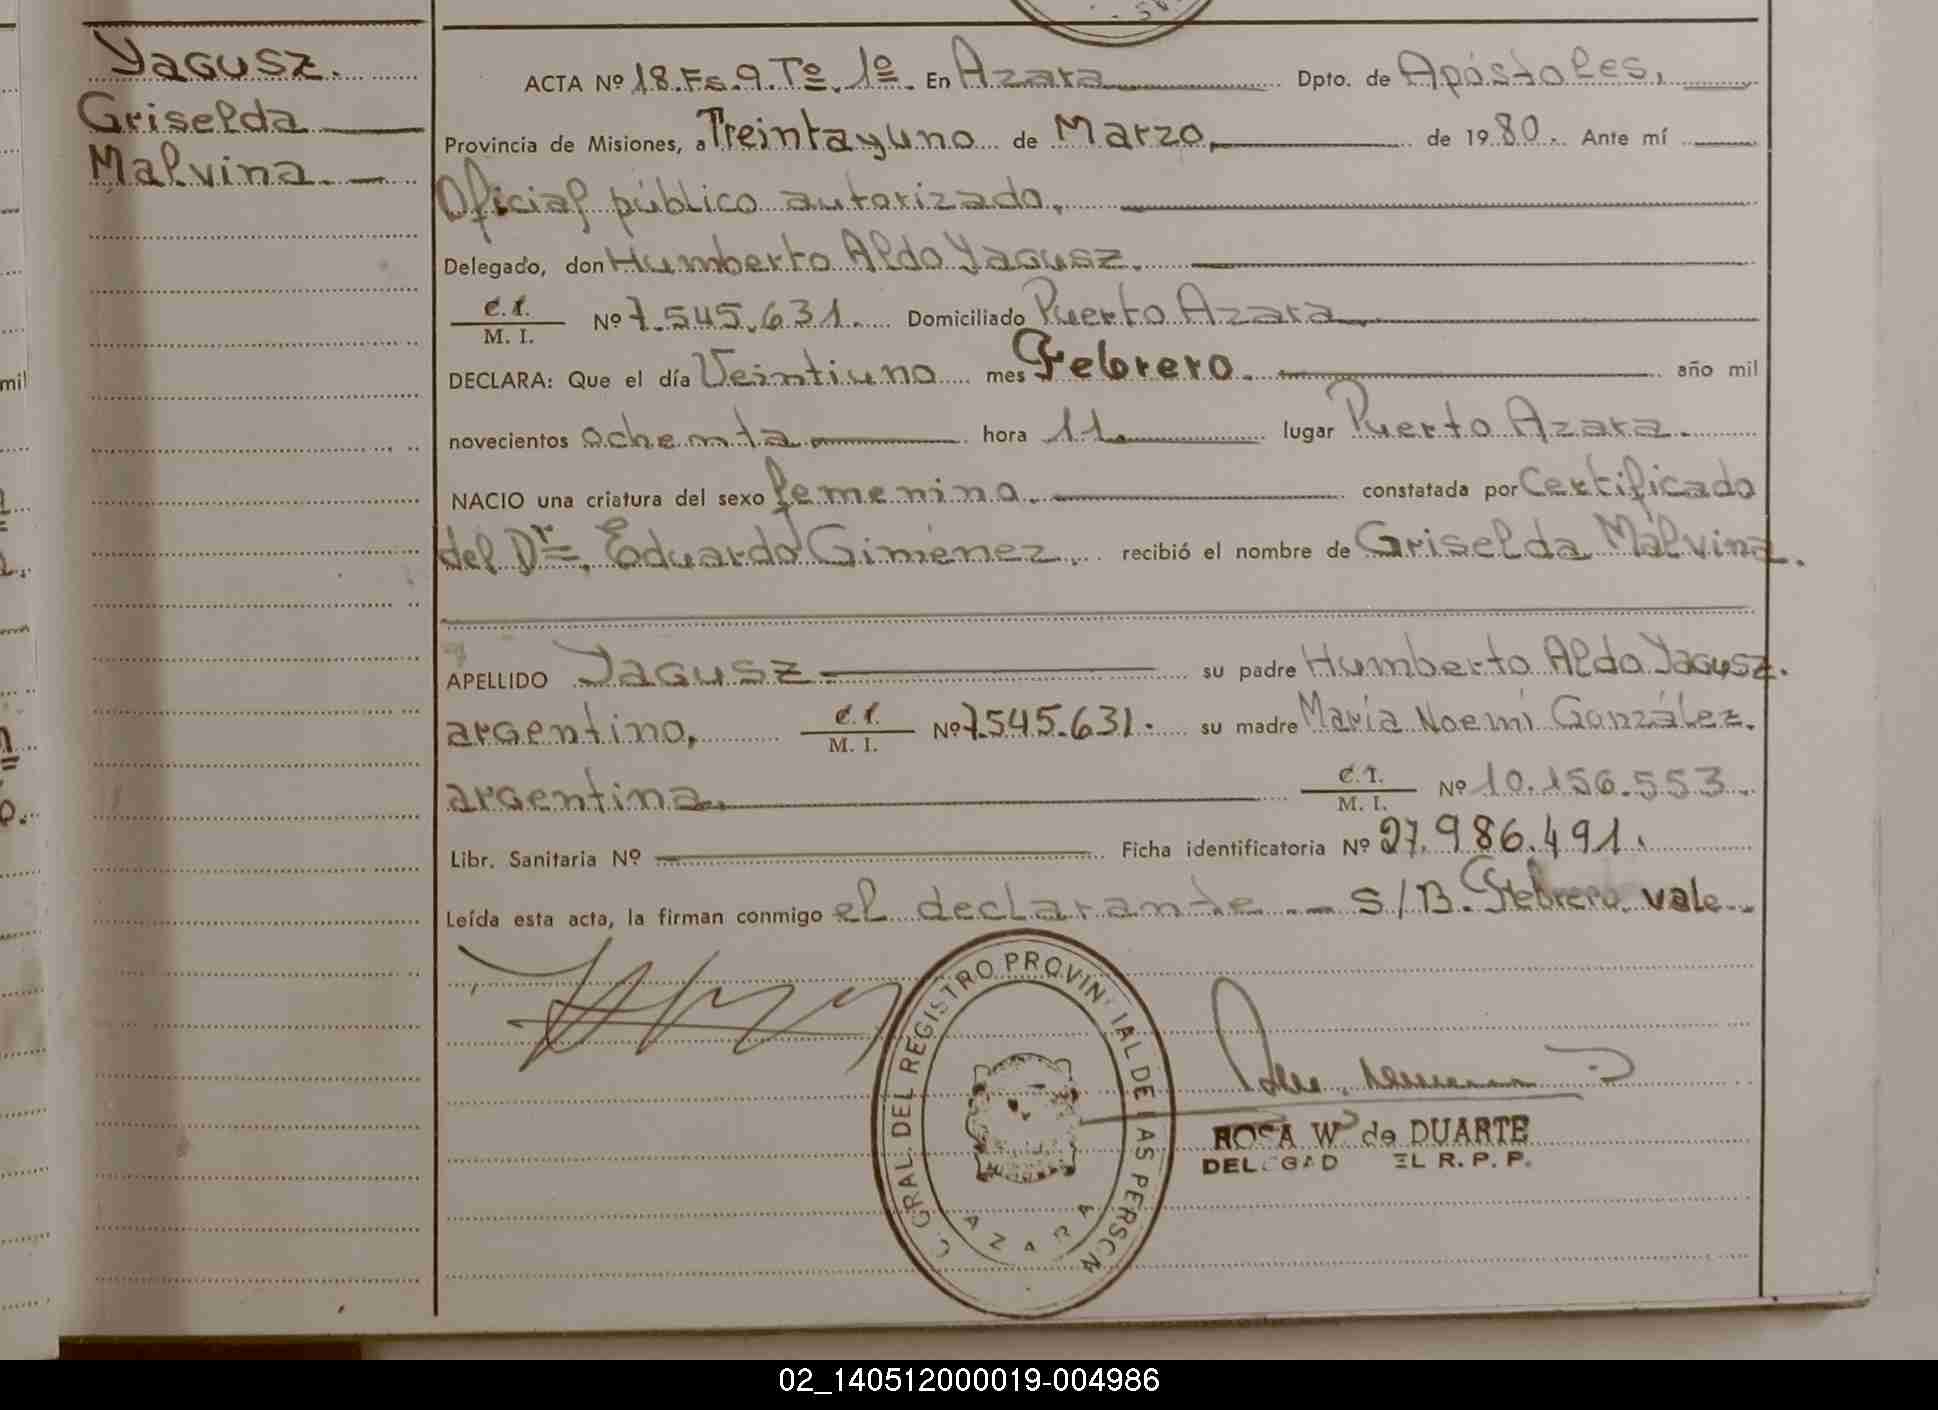 Yagusz.
Griselda
Malvina.
ACTA Nº 18. Fs. 9. Tº. 1º. En Azara Dpto. de Apóstoles,
Provincia de Misiones, a Treinta y uno de Marzo, de 1980. Ante mí
Oficial público autorizado,
Delegado, don Humberto Aldo Yagusz.
C.I.
M. I. Nº 7.545.631. Domiciliado Puerto Azara
DECLARA: Que el día Veintiuno mes Febrero. año mil
novecientos ochenta hora 11. lugar Puerto Azara.
NACIO una criatura del sexo femenino. constatada por Certificado
del Dr. Eduardo Giménez, recibió el nombre de Griselda Malvina.
APELLIDO Yagusz su padre Humberto Aldo Yagusz.
argentino, C.I. M. I. Nº 7.545.631. su madre María Noemi González.
argentina. C.I. M. I. Nº 10.156.553.
Libr. Sanitaria Nº Ficha identificatoria Nº 27.986.491.
Leída esta acta, la firman conmigo el declarante. S/B. Febrero. vale.
GRAL. DEL REGISTRO PROVIN IAL DE LAS PERSON
AZARA
ROSA W de DUARTE
DEL GAD EL R. P. P.
mil
02_140512000019-004986